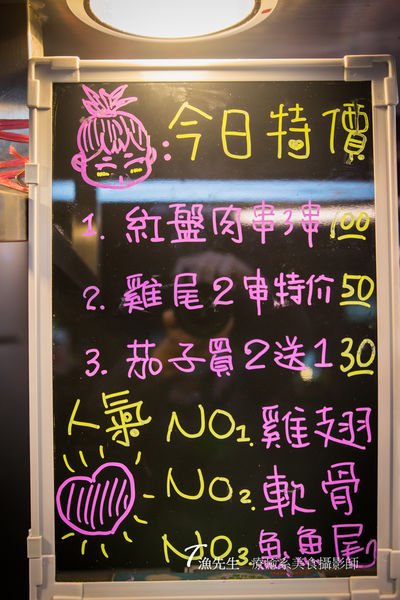 :今日特價
1. 紅盤肉串3串100
2. 雞尾2串特价50
3. 茄子買2送1 30
人氣 NO1.雞翅
NO2.軟骨
NO3.魚魚尾
漁先生 療癒系美食攝影師